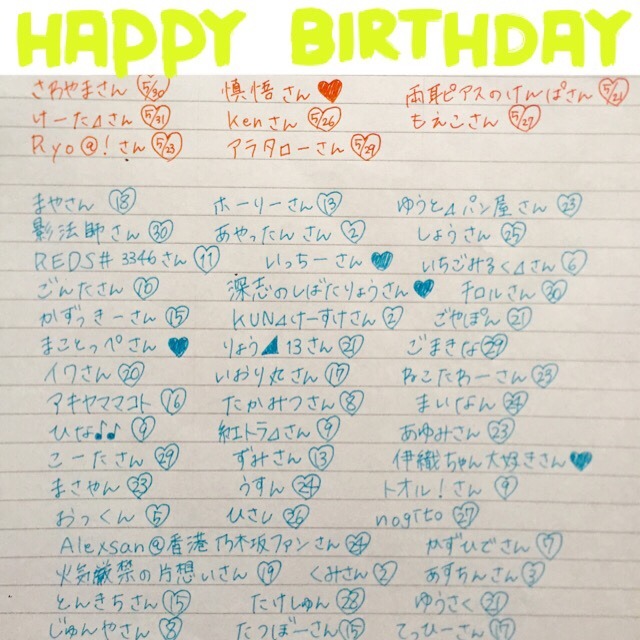 HAPPY BIRTHDAY
さわやまさん 5/30 慎悟さん 両耳ピアスのけんぱさん 5/21
けーた⊿さん 5/31 Kenさん 5/26 もえこさん 5/27
Ryo@!さん 5/23 アラタローさん 5/29
まやさん 18 ホーリーさん 13 ゆうと⊿パン屋さん 23
影法師さん 30 あやったんさん 2 しょうさん 25
REDS#3346さん 11 いっちーさん いちごみるく⊿さん 6
ごんたさん 10 深志のしばたりょうさん チロルさん 30
かずっきーさん 15 KUN⊿けーすけさん 2 ごやぽん 21
まことっぺさん りょう◢13さん 21 ごまきな 29
イワさん 20 いおり丸さん 17 ねこたわーさん 23
アキヤママコト 16 たかみつさん 8 まいなん 24
ひな♪♪ 9 紅トラ⊿さん 9 あゆみさん 23
こーたさん 29 ずみさん 13 伊織ちゃん大好きさん
まさやん 23 うすん 24 トオル!さん 9
おっくん 5 ひさし 26 nogito 27
Alexsan@香港乃木坂ファンさん 24 かずひでさん 7
火気厳禁の片想いさん 19 くみさん 2 あすちんさん 3
とんきちさん 15 たけしゅん 28 ゆうさく 21
じゅんやさん 8 たつぼーさん 15 てっぴーさん 17